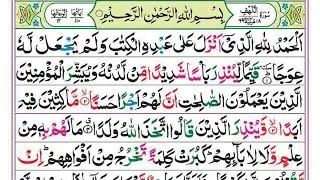 بِسْمِ اللّٰهِ الرَّحْمٰنِ الرَّحِيْمِ
اَلْحَمْدُ لِلّٰهِ الَّذِیْۤ اَنْزَلَ عَلٰی عَبْدِهِ الْكِتٰبَ وَلَمْ یَجْعَلْ لَّهٗ
عِوَجًا ۜ ۱ قَیِّمًا لِّیُنْذِرَ بَاْسًا شَدِیْدًا مِّنْ لَّدُنْهُ وَیُبَشِّرَ الْمُؤْمِنِیْنَ
الَّذِیْنَ یَعْمَلُوْنَ الصّٰلِحٰتِ اَنَّ لَهُمْ اَجْرًا حَسَنًا ۲ مَّاكِثِیْنَ فِیْهِ
اَبَدًا ۳ وَّیُنْذِرَ الَّذِیْنَ قَالُوا اتَّخَذَ اللّٰهُ وَلَدًا ۴ مَا لَهُمْ بِهٖ مِنْ
عِلْمٍ وَّلَا لِاٰبَآىِٕهِمْ كَبُرَتْ كَلِمَةً تَخْرُجُ مِنْ اَفْوَاهِهِمْ اِنْ